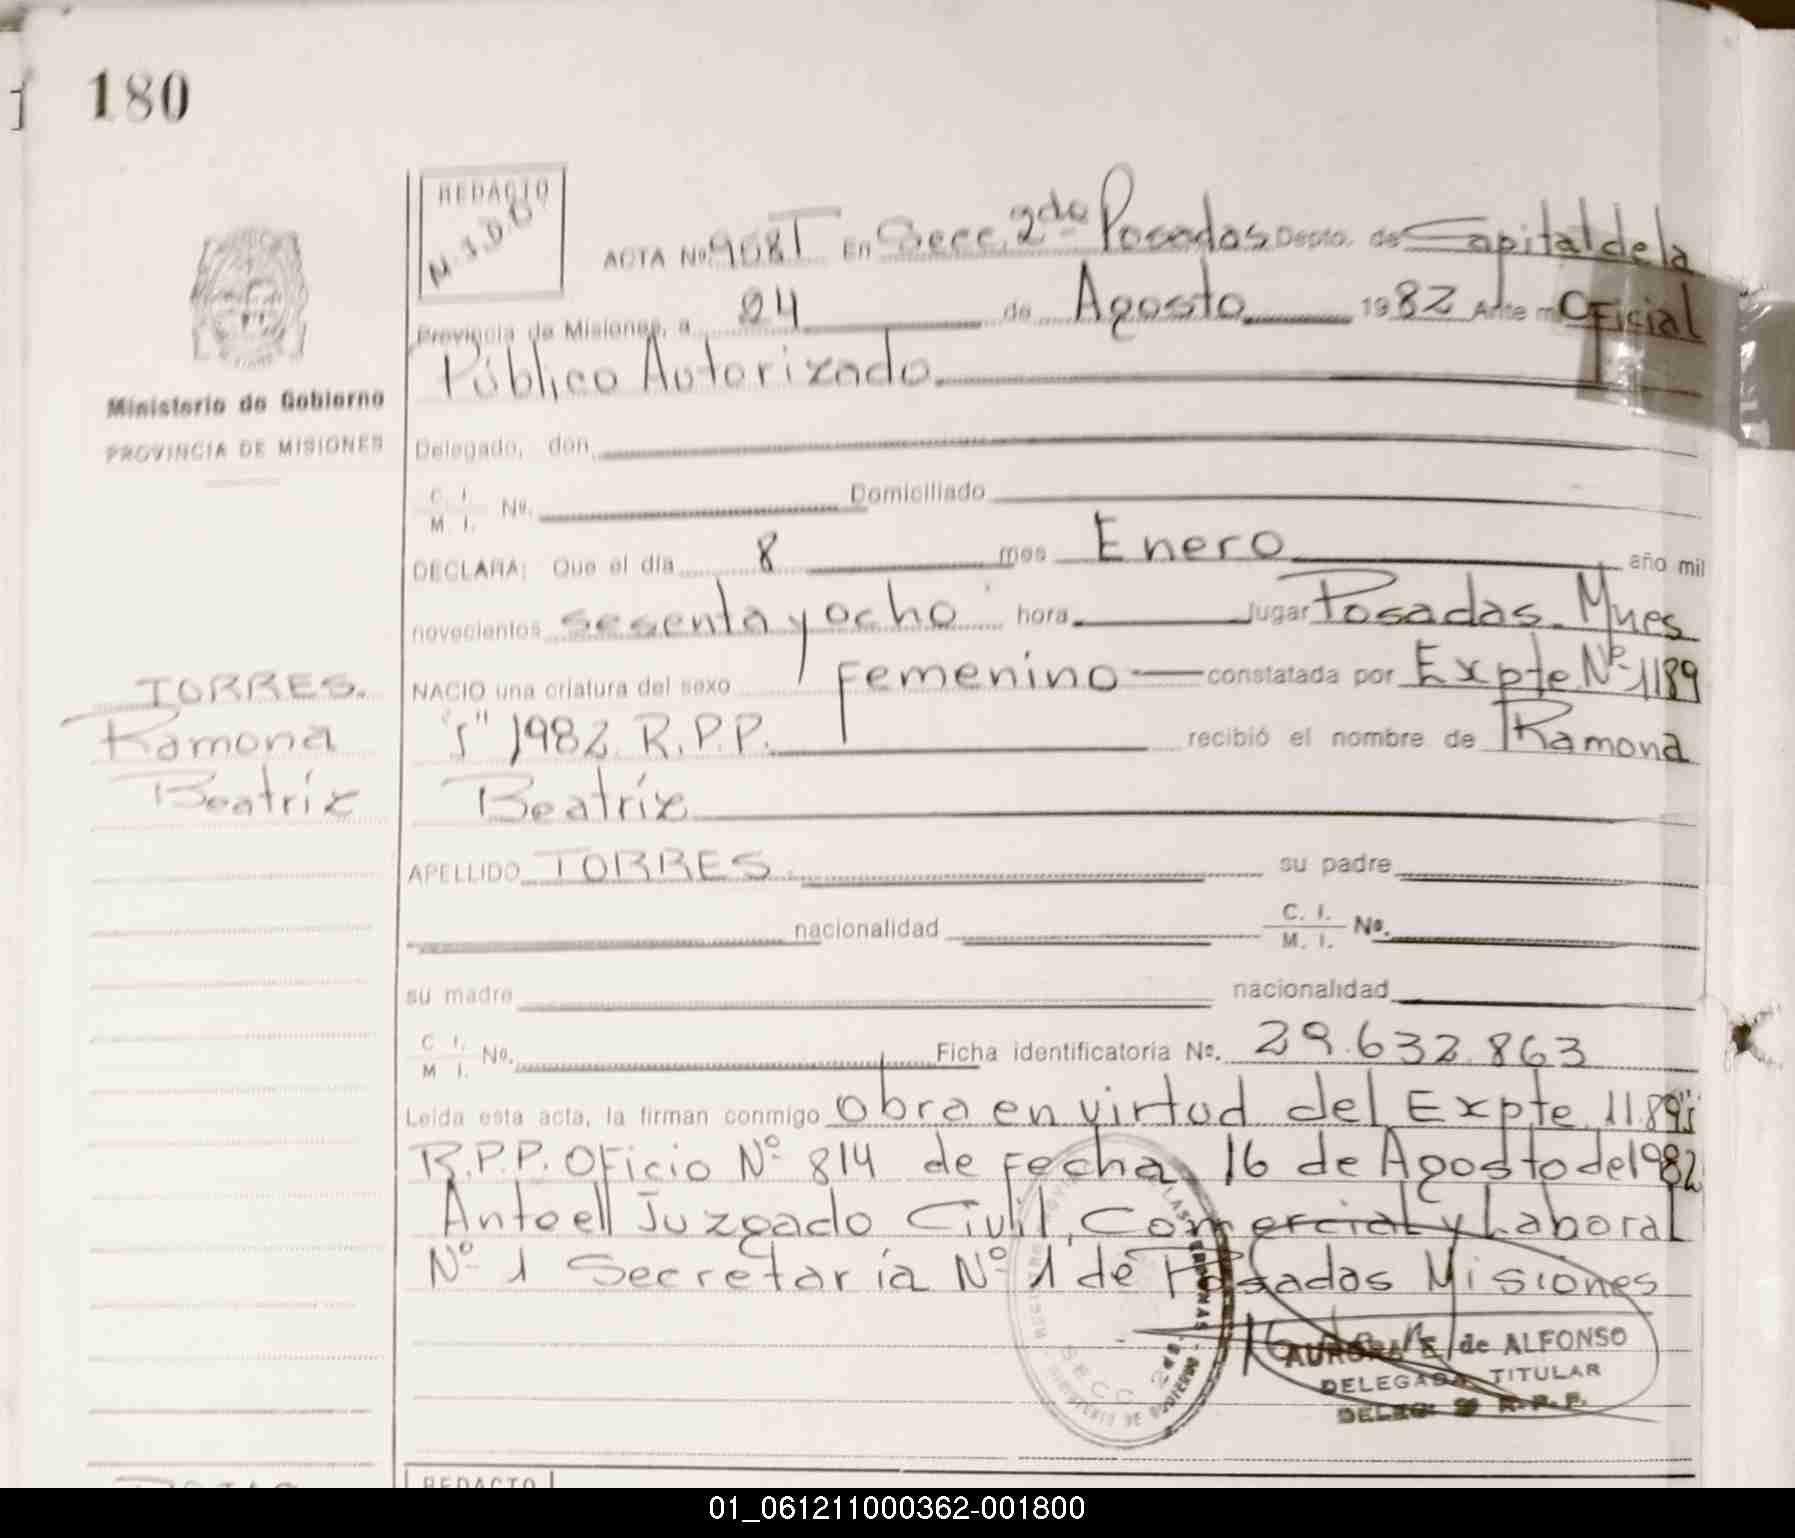 180
REDACTO
M.J.D.D
ACTA Nº 908T En Secc. 2da Posadas Depto. de Capital de la
Provincia de Misiones, a 24 de Agosto 1982 Ante mi Oficial
Público Autorizado.
Ministerio de Gobierno
PROVINCIA DE MISIONES
Delegado, don
C. I.
M. I. Nº. Domiciliado
DECLARA: Que el día 8 mes Enero año mil
novecientos sesenta y ocho hora lugar Posadas. Mnes
TORRES.
Ramona
Beatríz
NACIO una criatura del sexo Femenino constatada por Expte Nº 1189
"S" 1982. R.P.P. recibió el nombre de Ramona
Beatríz
APELLIDO TORRES. su padre
nacionalidad C. I.
M. I. Nº.
su madre nacionalidad
C. I.
M. I. Nº. Ficha identificatoria Nº. 29.632.863
Leída esta acta, la firman conmigo obra en virtud del Expte. 1189"S"
R.P.P. Oficio Nº 814 de Fecha 16 de Agosto de 1982
Ante ell Juzgado Civil, Comercial y Laboral
Nº 1 Secretaría Nº 1 de Posadas Misiones
SECC. 2da
AURORA E. de ALFONSO
DELEGADA TITULAR
DELEG. R.P.P.
REDACTO
01_061211000362-001800